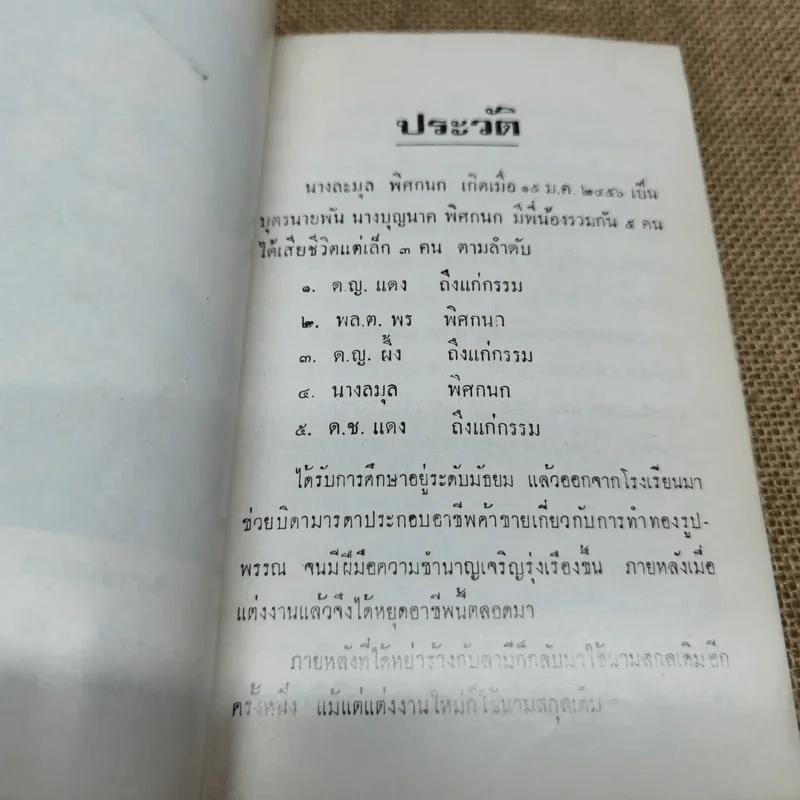 ประวัติ
นางละมุล พิศกนก เกิดเมื่อ ๑๕ ม.ค. ๒๔๕๖ เป็น
บุตรนายพัน นางบุญนาค พิศกนก มีพี่น้องรวมกัน ๕ คน
ได้เสียชีวิตแต่เล็ก ๓ คน ตามลำดับ
๑. ด.ญ. แดง ถึงแก่กรรม
๒. พล.ต. พร พิศกนก
๓. ด.ญ. ผึ้ง ถึงแก่กรรม
๔. นางลมุล พิศกนก
๕. ด.ช. แดง ถึงแก่กรรม
ได้รับการศึกษาอยู่ระดับมัธยม แล้วออกจากโรงเรียนมา
ช่วยบิดามารดาประกอบอาชีพค้าขายเกี่ยวกับการทำทองรูป-
พรรณ จนมีฝีมือความชำนาญเจริญรุ่งเรืองขึ้น ภายหลังเมื่อ
แต่งงานแล้วจึงได้หยุดอาชีพนี้ตลอดมา
ภายหลังที่ได้หย่าร้างกับสามีก็กลับมาใช้นามสกุลเดิมอีก
ครั้งหนึ่ง แม้แต่แต่งงานใหม่ก็ใช้นามสกุลเดิม